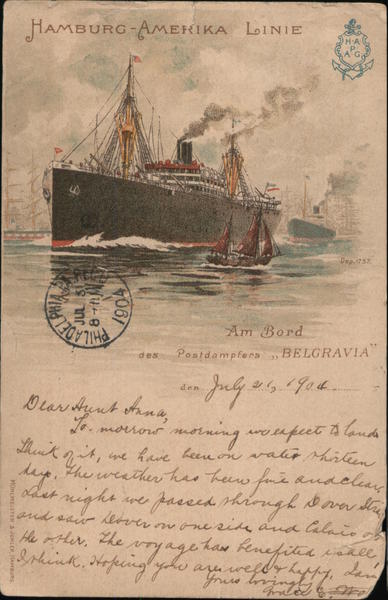 HAMBURG-AMERIKA LINIE
H A P A G
Dep. 1757.
PHILADELPHIA, PA.
JUL 31
8-PM
1904
Am Bord
des Postdampfers „BELGRAVIA”
den July 21, 1904
Dear Aunt Anna,
To-morrow morning we expect to land.
Think of it, we have been on water thirteen
days. The weather has been fine and clear.
Last night we passed through Dover
and saw Dover on one side and Calais on
the other. The voyage has benefited us all
I think. Hoping you are well & happy, I am
Yours lovingly
MÜHLMEISTER & JOHLER, HAMBURG